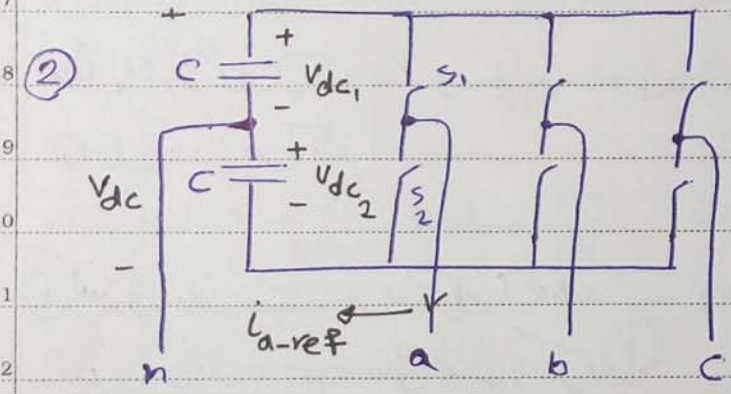 7
+
8
②
C
+
Vdc₁
-
S₁
9
Vdc
C
+
Vdc₂
-
S₂
0
-
1
i a-ref
2
n
a
b
c